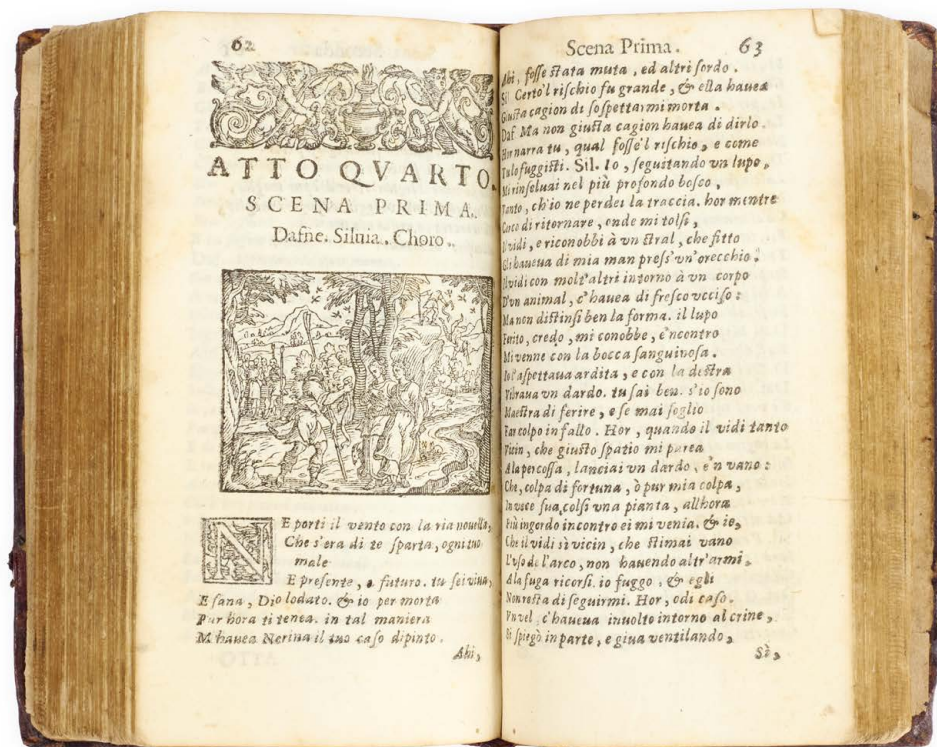 62
ATTO QVARTO.
SCENA PRIMA.
Dafne. Siluia. Choro.
NE porti il vento con la ria nouella,
Che s'era di te sparta, ogni tuo
male
E presente, e futuro. tu sei viua,
E sana, Dio lodato. & io per morta
Pur hora ti tenea. in tal maniera
M hauea Nerina il tuo caso dipinto.
Ahi,
Scena Prima. 63
Ahi, fosse stata muta, ed altri sordo.
Sil Certo'l rischio fu grande, & ella hauea
Giusta cagion di sospettarmi morta.
Daf Ma non giusta cagion hauea di dirlo.
Hor narra tu, qual fosse'l rischio, e come
Tu lo fuggisti. Sil. Io, seguitando vn lupo,
Mi rinseluai nel più profondo bosco,
Tanto, ch'io ne perdei la traccia. hor mentre
Cerco di ritornare, onde mi tolsi,
Il vidi, e riconobbi à vn stral, che fitto
Gli haueua di mia man press'un'orecchio.
Il vidi con molt'altri intorno à vn corpo
D'vn animal, c'hauea di fresco vcciso:
Ma non distinsi ben la forma. il lupo
Ferito, credo, mi conobbe, e'ncontro
Mi venne con la bocca sanguinosa.
Io l'aspettaua ardita, e con la destra
Vibraua vn dardo. tu sai ben. s'io sono
Maestra di ferire, e se mai soglio
Far colpo in fallo. Hor, quando il vidi tanto
Vicin, che giusto spatio mi parea
A la percossa, lanciai vn dardo, e'n vano:
Che, colpa di fortuna, ò pur mia colpa,
In vece sua colsi vna pianta, allhora
Più ingordo incontro ei mi venia. & io,
Che il vidi sì vicin, che stimai vano
L'vso de l'arco, non hauendo altr'armi,
A la fuga ricorsi. io fuggo, & egli
Non resta di seguirmi. Hor, odi caso.
Vn vel c'haueua inuolto intorno al crine,
Si spiegò in parte, e giua ventilando,
Sè,